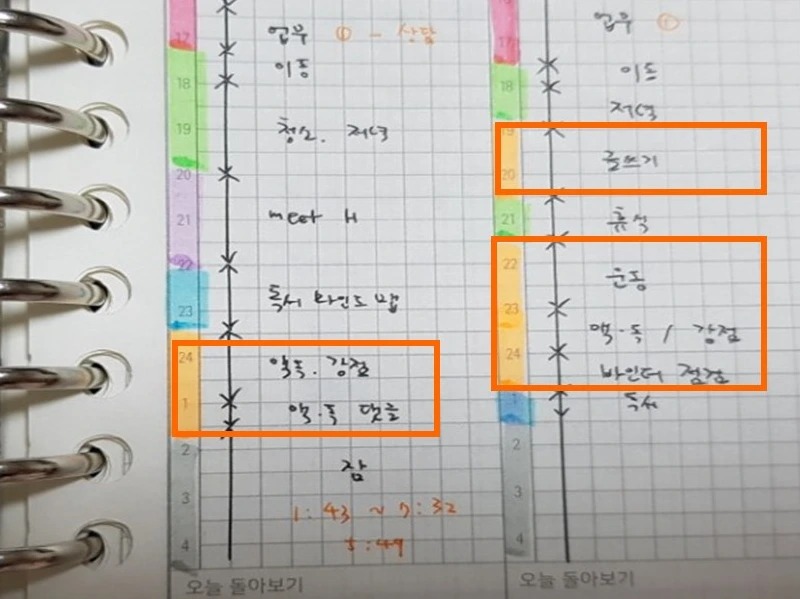 17
업무 ① - 상담
이동
18
청소. 저녁
19
20
meet H
21
22
독서 마인드 맵
23
24
액독. 강점
1
액.독 댓글
2
잠
3
1:43 ~ 7:32
5:49
4
오늘 돌아보기
업무 ①
17
이동
18
저녁
19
글쓰기
20
21
휴식
22
운동
23
액.독 / 강점
24
바인더 점검
1
독서
2
3
4
오늘 돌아보기